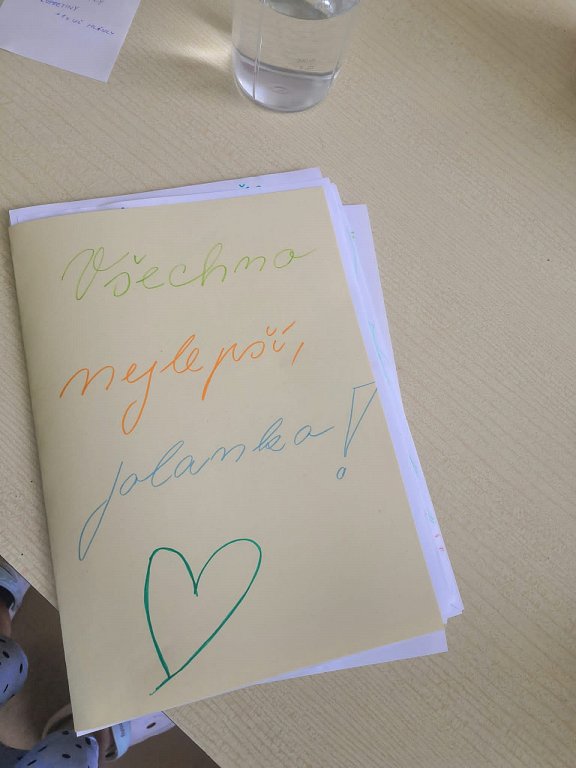 Všechno
nejlepší,
Jolanka!